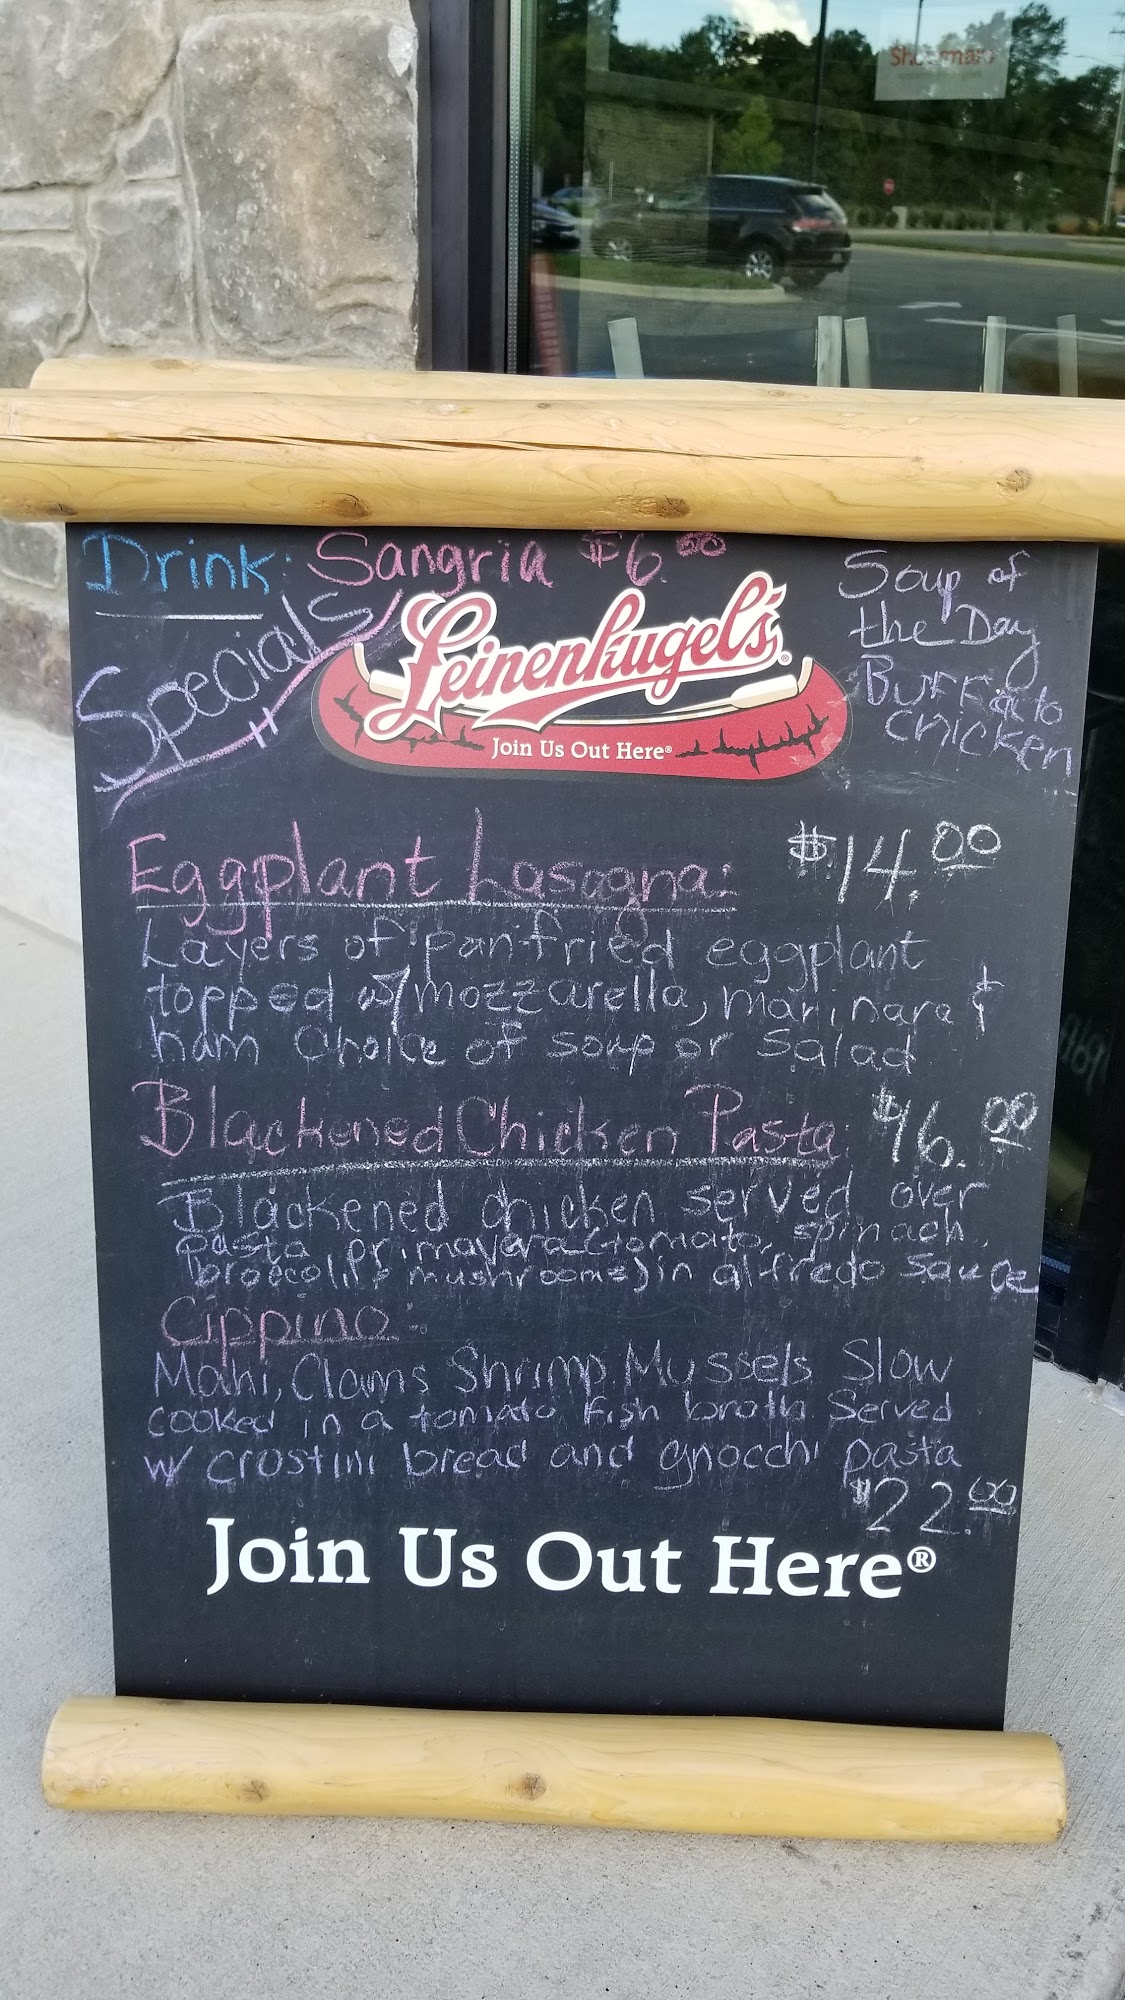 Drink: Sangria $6.00
Specials
Soup of
the Day
Buffalo
Chicken
Leinenkugel's®
Join Us Out Here®
Eggplant Lasagna: $14.00
Layers of panfried eggplant
topped w/ mozzarella, marinara &
ham Choice of soup or Salad
Blackened Chicken Pasta: $16.00
Blackened chicken served over
pasta primavera (tomato, spinach,
broccoli, & mushrooms) in alfredo sauce
Cippino:
Mahi, Clams Shrimp Mussels Slow
cooked in a tomato fish broth. Served
w/ crostini bread and gnocchi pasta
$22.00
Join Us Out Here®